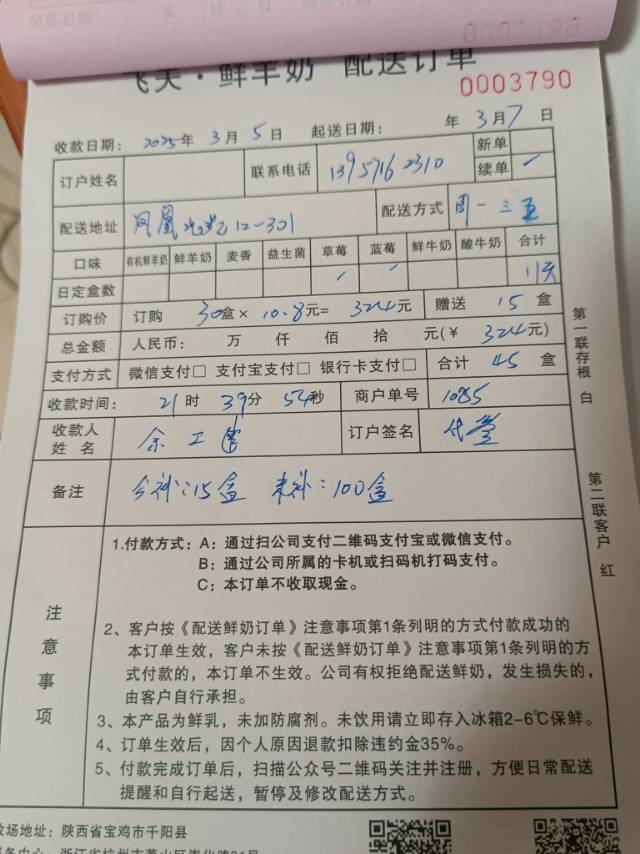 飞天·鲜羊奶 配送订单
0003790
收款日期: 2025年 3月 5日 起送日期: 年 3月 7日
订户姓名 联系电话 139 5716 2310 新单
续单 ✓
配送地址 凤凰 12-301 配送方式 周一三五
口味 有机鲜羊奶 鲜羊奶 麦香 益生菌 草莓 蓝莓 鲜牛奶 酸牛奶 合计
日定盒数 / / 1/天
订购价 订购 30盒× 10.8元= 324元 赠送 15 盒
总金额 人民币: 万 仟 佰 拾 元(¥ 324元)
支付方式 微信支付□ 支付宝支付□ 银行卡支付□ 合计 45 盒
收款时间: 21时 39分 54秒 商户单号 1085
收款人姓名 余 订户签名 代
备注 今补:15盒 未补:100盒
第一联存根 白
第二联客户 红
注意事项
1.付款方式: A: 通过扫公司支付二维码支付宝或微信支付。
B: 通过公司所属的卡机或扫码机打码支付。
C: 本订单不收取现金。
2、客户按《配送鲜奶订单》注意事项第1条列明的方式付款成功的
本订单生效，客户未按《配送鲜奶订单》注意事项第1条列明的方
式付款的，本订单不生效。公司有权拒绝配送鲜奶，发生损失的，
由客户自行承担。
3、本产品为鲜乳，未加防腐剂。未饮用请立即存入冰箱2-6℃保鲜。
4、订单生效后，因个人原因退款扣除违约金35%。
5、付款完成订单后，扫描公众号二维码关注并注册，方便日常配送
提醒和自行起送，暂停及修改配送方式。
牧场地址: 陕西省宝鸡市千阳县